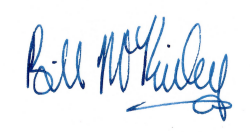 Bill McKinley